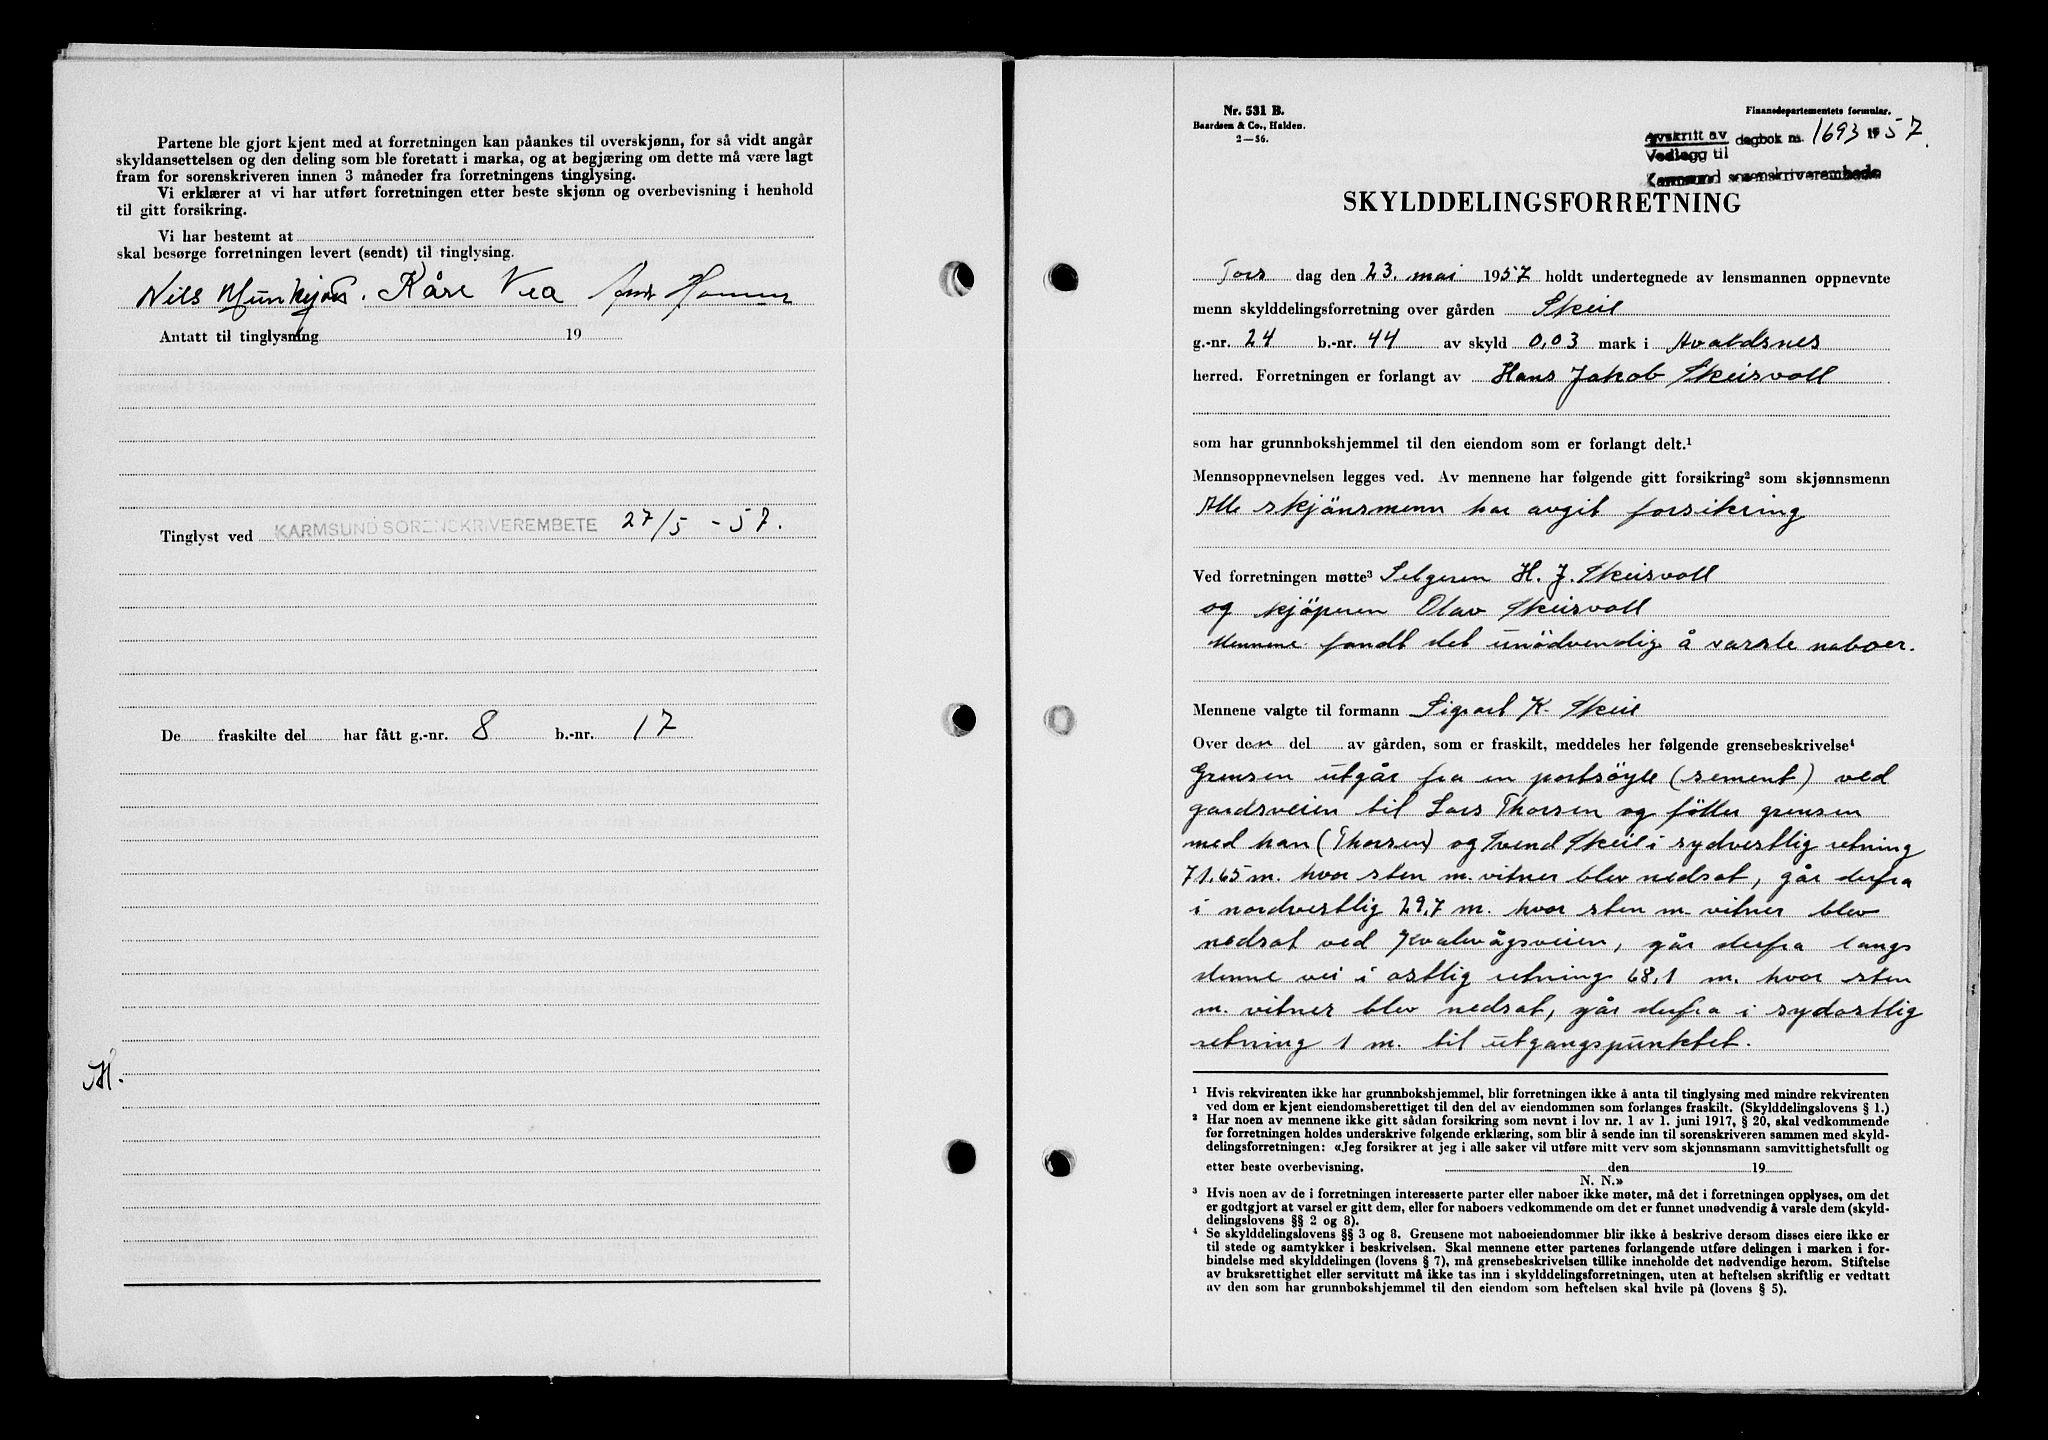 Partene ble gjort kjent med at forretningen kan påankes til overskjønn, for så vidt angår
skyldansettelsen og den deling som ble foretatt i marka, og at begjæring om dette må være lagt
fram for sorenskriveren innen 3 måneder fra forretningens tinglysing.
Vi erklærer at vi har utført forretningen etter beste skjønn og overbevisning i henhold
til gitt forsikring.
Vi har bestemt at
skal besørge forretningen levert (sendt) til tinglysing.
Nils Munkejord. Kåre Vea
Antatt til tinglysning 19
Tinglyst ved KARMSUND SORENSKRIVEREMBETE 27/5 - 57.
De fraskilte del har fått g.-nr. 8 b.-nr. 17
Nr. 531 B.
Baardsen & Co., Halden.
2—56.
Finansdepartementets formular.
Avskrift av dagbok nr. 1693 1957.
Vedlegg til
Karmsund sorenskriverembede
SKYLDDELINGSFORRETNING
Tors dag den 23. mai 1957 holdt undertegnede av lensmannen oppnevnte
menn skylddelingsforretning over gården Skeie
g.-nr. 24 b.-nr. 44 av skyld 0,03 mark i Avaldsnes
herred. Forretningen er forlangt av Hans Jakob Skeisvoll
som har grunnbokshjemmel til den eiendom som er forlangt delt.¹
Mennsoppnevnelsen legges ved. Av mennene har følgende gitt forsikring² som skjønnsmenn
Alle skjönsmenn har avgit forsikring
Ved forretningen møtte³ Selgeren H. J. Skeisvoll
og kjöperen Olav Skeisvoll
Mennene fandt det unödvendig å varsle naboer.
Mennene valgte til formann Sigvart K. Skeie
Over den del av gården, som er fraskilt, meddeles her følgende grensebeskrivelse⁴
Grensen utgår fra en portsöyle (sement) ved
gardsveien til Lars Thorsen og föller grensen
med han (Thorsen) og Svend Skeie i sydvestlig retning
71.65 m. hvor sten m. vitner blev nedsat, går derfra
i nordvestlig 29,7 m. hvor sten m. vitner blev
nedsat ved Kvalevågsveien, går derfra langs
denne vei i ostlig retning 68,1 m. hvor sten
m. vitner blev nedsat, går derfra i sydostlig
retning 1 m. til utgangspunktet.
¹ Hvis rekvirenten ikke har grunnbokshjemmel, blir forretningen ikke å anta til tinglysing med mindre rekvirenten
ved dom er kjent eiendomsberettiget til den del av eiendommen som forlanges fraskilt. (Skylddelingslovens § 1.)
² Har noen av mennene ikke gitt sådan forsikring som nevnt i lov nr. 1 av 1. juni 1917, § 20, skal vedkommende
før forretningen holdes underskrive følgende erklæring, som blir å sende inn til sorenskriveren sammen med skyld-
delingsforretningen: «Jeg forsikrer at jeg i alle saker vil utføre mitt verv som skjønnsmann samvittighetsfullt og
etter beste overbevisning. den 19
N. N.»
³ Hvis noen av de i forretningen interesserte parter eller naboer ikke møter, må det i forretningen opplyses, om det
er godtgjort at varsel er gitt dem, eller for naboers vedkommende om det er funnet unødvendig å varsle dem (skyld-
delingslovens §§ 2 og 8).
⁴ Se skylddelingslovens §§ 3 og 8. Grensene mot naboeiendommer blir ikke å beskrive dersom disses eiere ikke er
til stede og samtykker i beskrivelsen. Skal mennene etter partenes forlangende utføre delingen i marken i for-
bindelse med skylddelingen (lovens § 7), må grensebeskrivelsen tillike inneholde det nødvendige herom. Stiftelse
av bruksrettighet eller servitutt må ikke tas inn i skylddelingsforretningen, uten at heftelsen skriftlig er vedtatt
av den som har grunnbokshjemmel til den eiendom som heftelsen skal hvile på (lovens § 5).